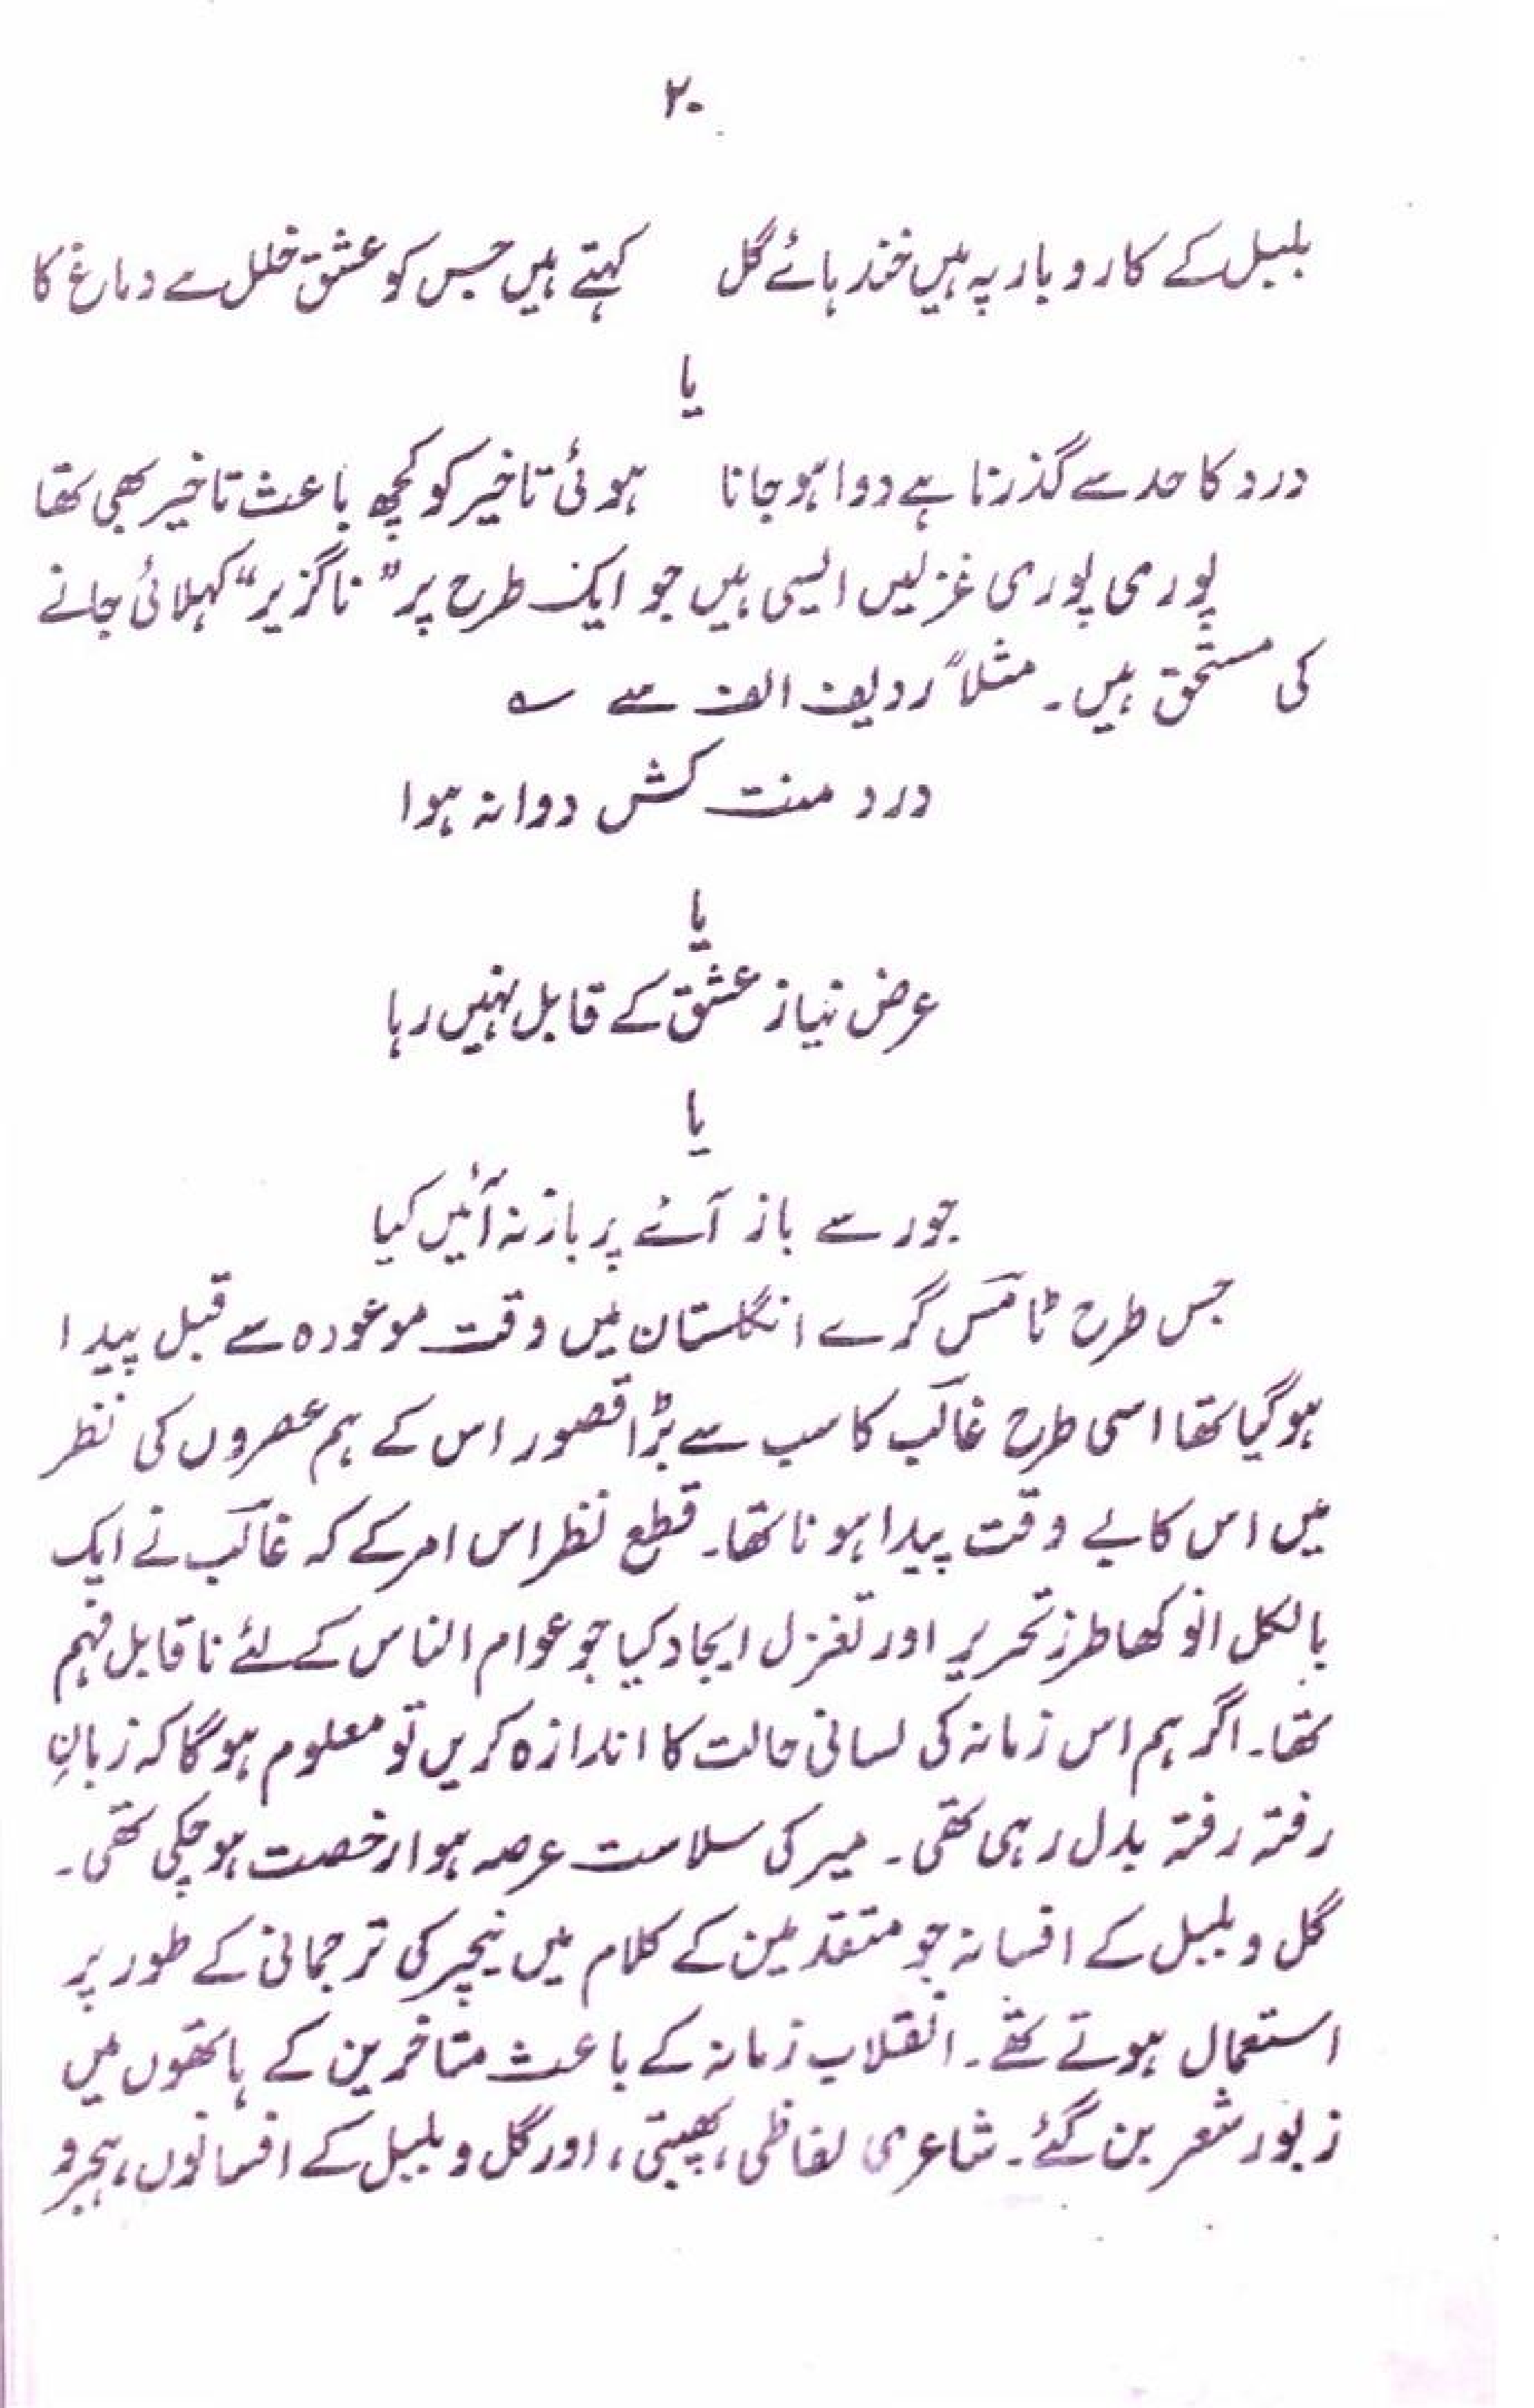 ۲۰
بلبل کے کاروبار پہ ہیں خندہائے گل کہتے ہیں جس کو عشق خلل ہے دماغ کا
یا
درد کا حد سے گذرنا ہے دوا ہو جانا ہوئی تاخیر کو کچھ باعث تاخیر بھی تھا
پوری پوری غزلیں ایسی ہیں جو ایک طرح پر ”ناگزیر“ کہلائی جانے
کی مستحق ہیں۔ مثلاً ردیف الف سے ؎
درد منت کش دوا نہ ہوا
یا
عرض نیاز عشق کے قابل نہیں رہا
یا
جور سے باز آئے پر باز نہ آئیں کیا
جس طرح ٹامسؔ گرے انگلستان میں وقت موعودہ سے قبل پیدا
ہوگیا تھا اسی طرح غالبؔ کا سب سے بڑا قصور اس کے ہم عصروں کی نظر
میں اس کا بے وقت پیدا ہونا تھا۔ قطع نظر اس امر کے کہ غالبؔ نے ایک
بالکل انوکھا طرز تحریر اور تغزل ایجاد کیا جو عوام الناس کے لئے ناقابل فہم
تھا۔ اگر ہم اس زمانہ کی لسانی حالت کا اندازہ کریں تو معلوم ہوگا کہ زبانِ
رفتہ رفتہ بدل رہی تھی۔ میر کی سلاست عرصہ ہوا رخصت ہوچکی تھی۔
گل و بلبل کے افسانہ جو متقدمین کے کلام میں نیچر کی ترجمانی کے طور پر
استعمال ہوتے تھے۔ انقلاب زمانہ کے باعث متاخرین کے ہاتھوں میں
زیور شعر بن گئے۔ شاعری لفاظی، پھبتی، اور گل و بلبل کے افسانوں، ہجر و